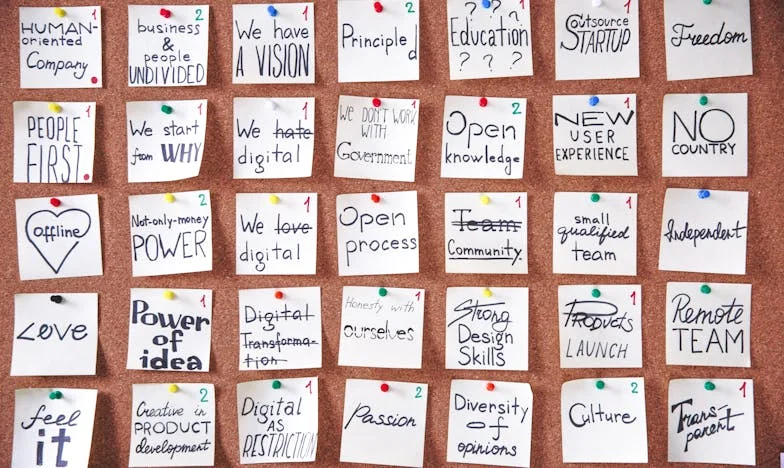 HUMAN-
oriented
Company
1
business
&
people
UNDIVIDED
2
We have
A VISION
1
Principled
2
? ? ?
Education
? ? ?
1
Outsource
STARTUP
1
Freedom
PEOPLE
FIRST.
1
We start
from WHY
1
We hate
digital
1
WE DON'T WORK
WITH
Government
1
Open
knowledge
2
NEW
USER
EXPERIENCE
1
NO
COUNTRY
offline
1
Not-only-money
POWER
2
We love
digital
1
Open
process
Team
Community.
1
small
qualified
team
1
Independent
Love
Power
of
idea
1
Digital
Transforma-
tion
1
Honesty with
ourselves
1
Strong
Design
Skills
Products
LAUNCH
1
Remote
TEAM
feel
it
Creative in
PRODUCT
development
2
Digital
AS
RESTRICTION
1
Passion
2
Diversity
of
opinions
Culture
2
Trans-
parent
1